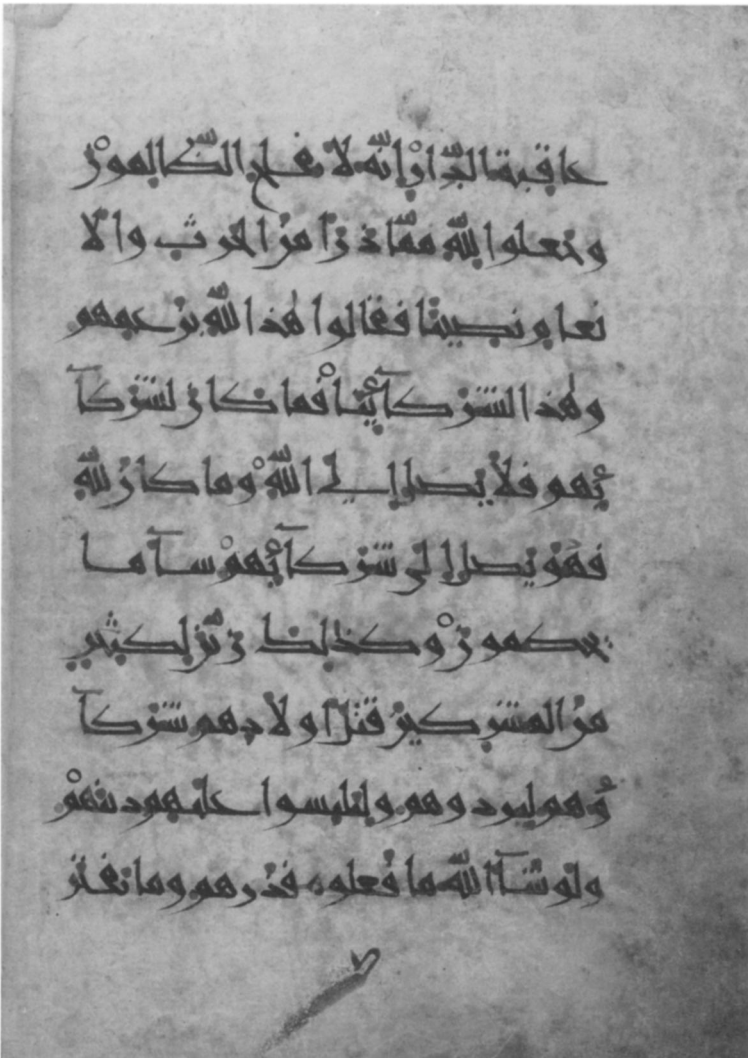 عاقبة الدّار إنّه لا يفلح الظّالمون
وجعلوا لله ممّا ذرأ من الحرث والا
نعام نصيبا فقالوا هذا لله بزعمهم
وهذا لشركآئنا فما كان لشركآ
ئهم فلا يصل إلى الله وما كان لله
فهو يصل إلى شركآئهم سآء ما
يحكمون وكذلك زيّن لكثير
من المشركين قتل أولادهم شركآ
ؤهم ليردوهم وليلبسوا عليهم دينهم
ولو شآء الله ما فعلوه فذرهم وما يفتر